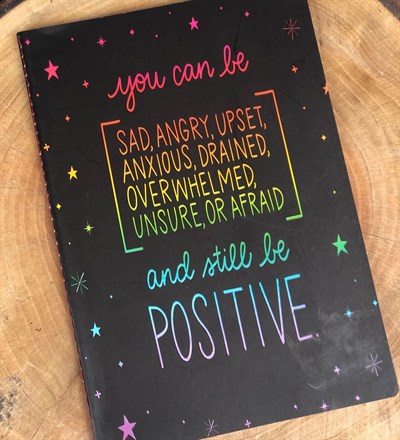 you can be
SAD, ANGRY, UPSET,
ANXIOUS, DRAINED,
OVERWHELMED,
UNSURE, OR AFRAID
and still be
POSITIVE.